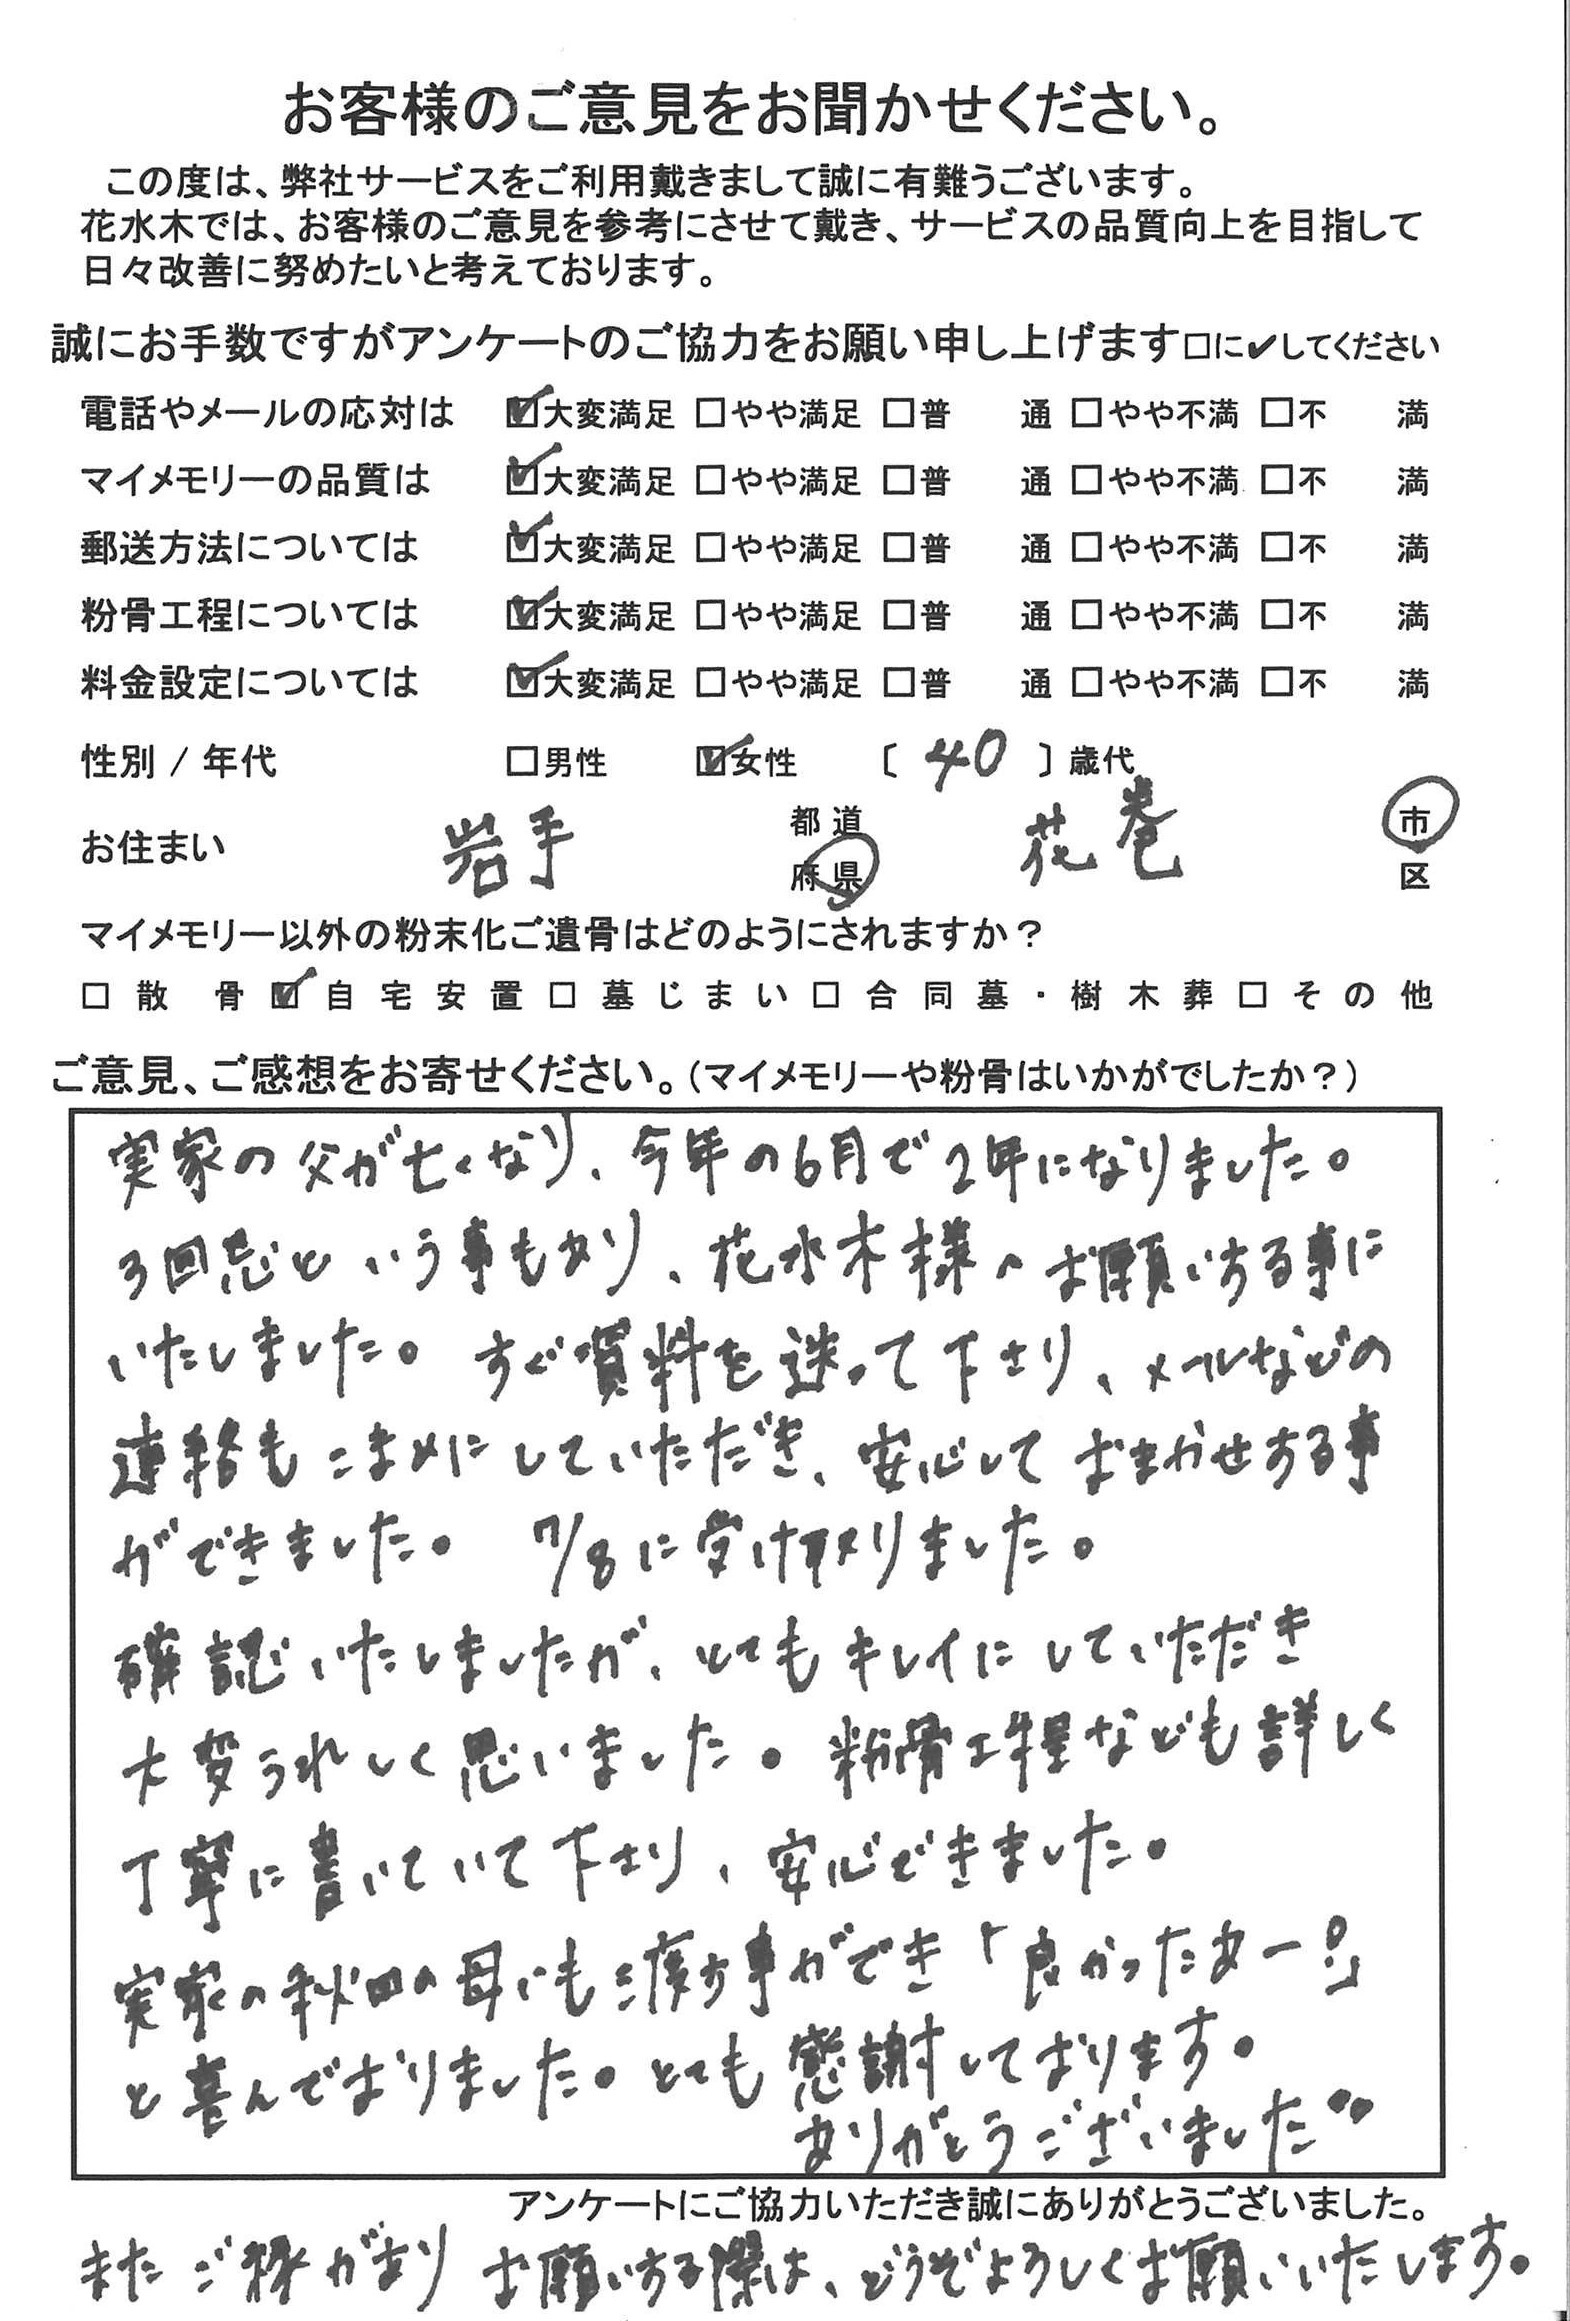 お客様のご意見をお聞かせください。
この度は、弊社サービスをご利用戴きまして誠に有難うございます。
花水木では、お客様のご意見を参考にさせて戴き、サービスの品質向上を目指して
日々改善に努めたいと考えております。
誠にお手数ですがアンケートのご協力をお願い申し上げます□に✔してください
電話やメールの応対は ☑大変満足 □やや満足 □普 通 □やや不満 □不 満
マイメモリーの品質は ☑大変満足 □やや満足 □普 通 □やや不満 □不 満
郵送方法については ☑大変満足 □やや満足 □普 通 □やや不満 □不 満
粉骨工程については ☑大変満足 □やや満足 □普 通 □やや不満 □不 満
料金設定については ☑大変満足 □やや満足 □普 通 □やや不満 □不 満
性別 / 年代 □男性 ☑女性 〔 40 〕歳代
お住まい 岩手 都道府県 花巻 市区
マイメモリー以外の粉末化ご遺骨はどのようにされますか？
□ 散 骨 ☑ 自宅安置 □ 墓じまい □ 合同墓・樹木葬 □ その他
ご意見、ご感想をお寄せください。(マイメモリーや粉骨はいかがでしたか？)
実家の父が亡くなり、今年の6月で2年になりました。
3回忌という事もあり、花水木様へお願いする事に
いたしました。すぐ資料を送って下さり、メールなどの
連絡もこまめにしていただき、安心しておまかせする事
ができました。 7/8に受け取りました。
確認いたしましたが、とてもキレイにしていただき
大変うれしく思いました。粉骨工程なども詳しく
丁寧に書いていて下さり、安心できました。
実家の秋田の母にも渡す事ができ「良かったあー!」
と喜んでおりました。とても感謝しております。
ありがとうございました
アンケートにご協力いただき誠にありがとうございました。
またご縁があり お願いする際は、どうぞよろしくお願いいたします。